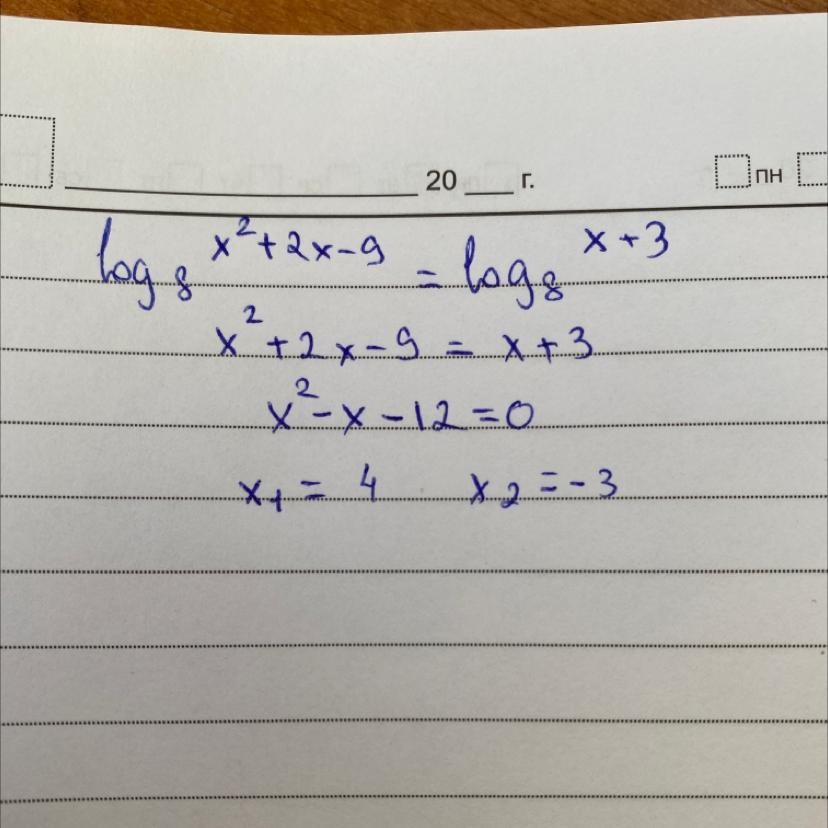 20 г. пн
log₈ x²+2x-9 = log₈ x+3
x²+2x-9 = x+3
x²-x-12=0
x₁ = 4 x₂ = -3